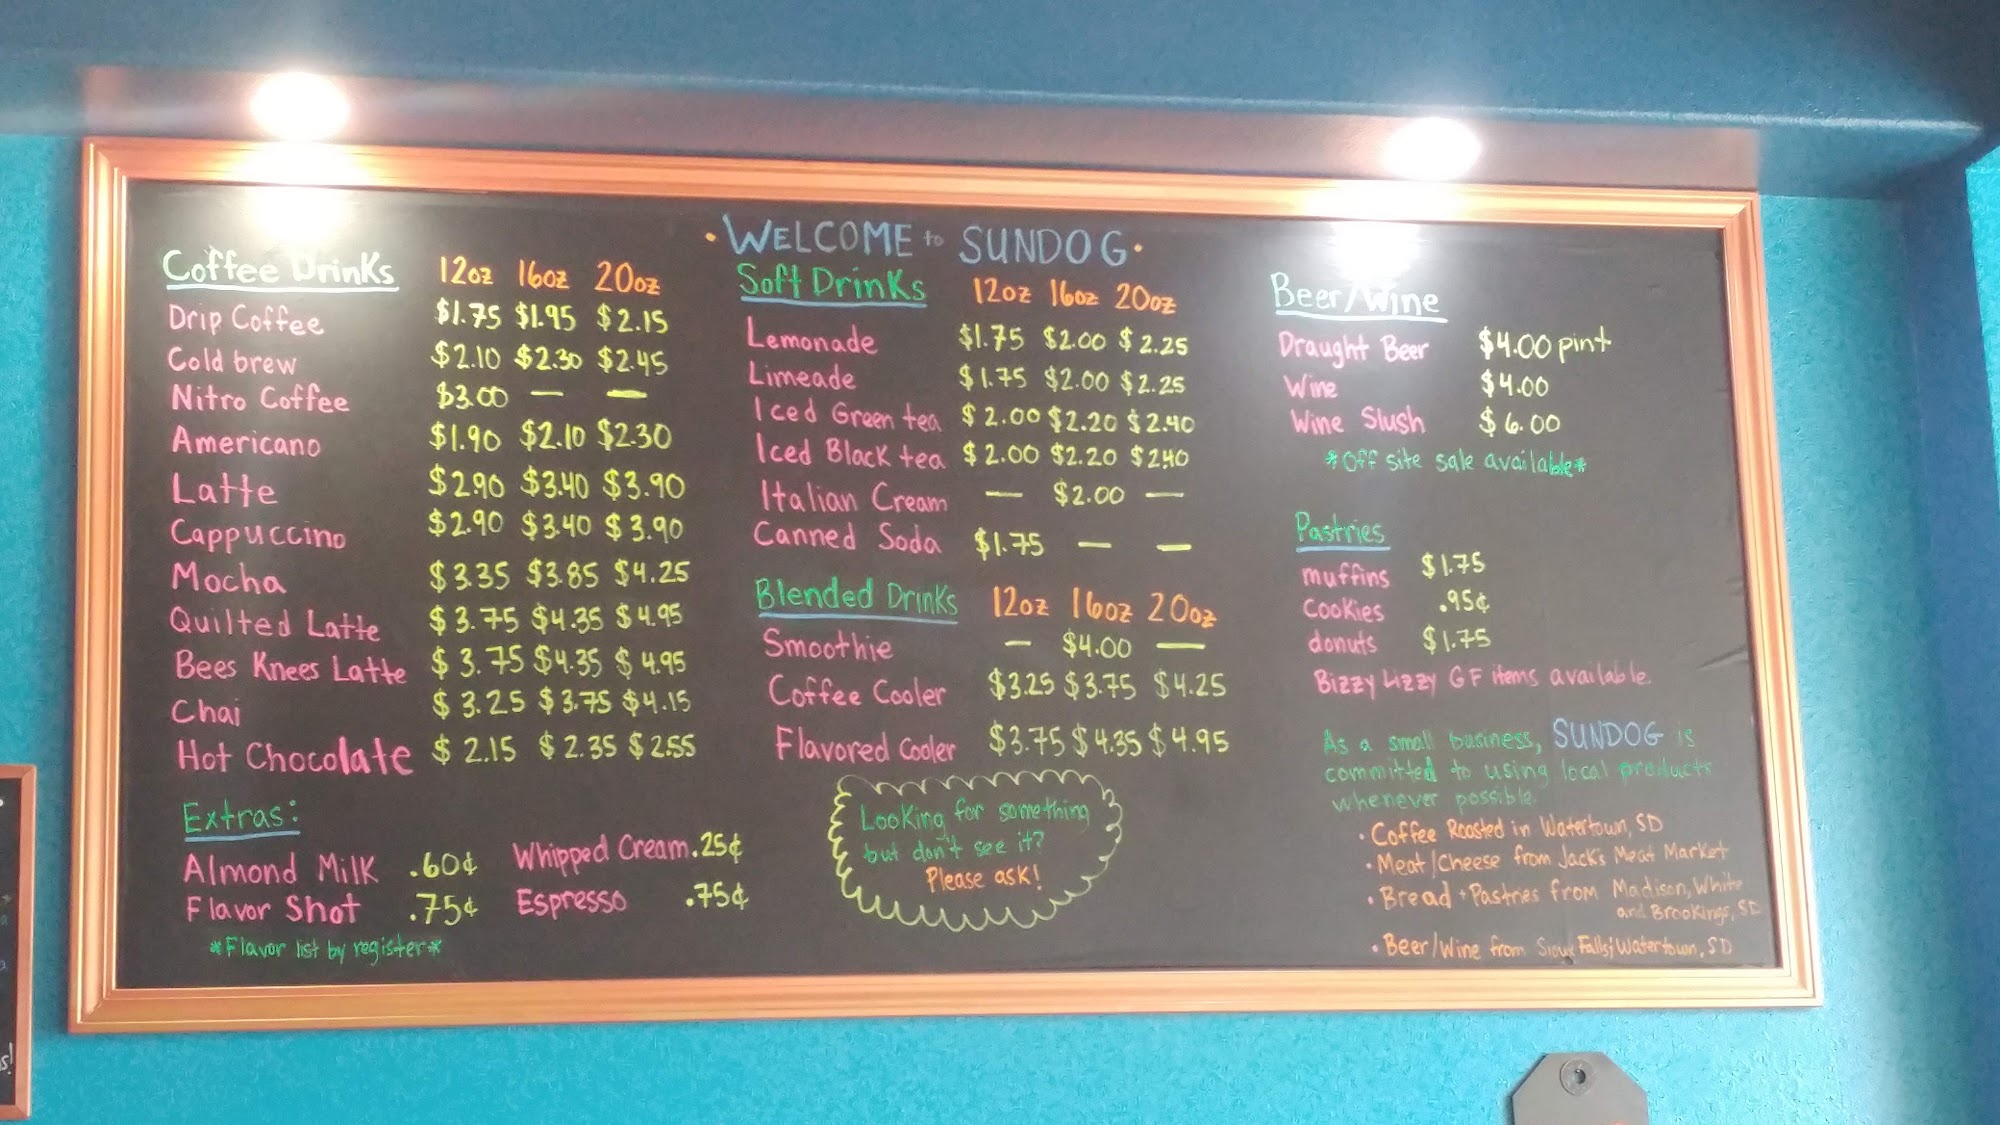 • WELCOME to SUNDOG •
Coffee Drinks 12oz 16oz 20oz
Drip Coffee $1.75 $1.95 $2.15
Cold brew $2.10 $2.30 $2.45
Nitro Coffee $3.00 — —
Americano $1.90 $2.10 $2.30
Latte $2.90 $3.40 $3.90
Cappuccino $2.90 $3.40 $3.90
Mocha $3.35 $3.85 $4.25
Quilted Latte $3.75 $4.35 $4.95
Bees Knees Latte $3.75 $4.35 $4.95
Chai $3.25 $3.75 $4.15
Hot Chocolate $2.15 $2.35 $2.55
Extras:
Almond Milk .60¢ Whipped Cream .25¢
Flavor Shot .75¢ Espresso .75¢
*Flavor list by register*
Soft Drinks 12oz 16oz 20oz
Lemonade $1.75 $2.00 $2.25
Limeade $1.75 $2.00 $2.25
Iced Green tea $2.00 $2.20 $2.40
Iced Black tea $2.00 $2.20 $2.40
Italian Cream — $2.00 —
Canned Soda $1.75 — —
Blended Drinks 12oz 16oz 20oz
Smoothie — $4.00 —
Coffee Cooler $3.25 $3.75 $4.25
Flavored Cooler $3.75 $4.35 $4.95
Looking for something
but don't see it?
Please ask!
Beer/Wine
Draught Beer $4.00 pint
Wine $4.00
Wine Slush $6.00
*Off site sale available*
Pastries
muffins $1.75
cookies .95¢
donuts $1.75
Bizzy Lizzy GF items available.
As a small business, SUNDOG is
committed to using local products
whenever possible.
• Coffee Roasted in Watertown, SD
• Meat/Cheese from Jack's Meat Market
• Bread + Pastries from Madison, White
and Brookings, SD
• Beer/Wine from Sioux Falls; Watertown, SD